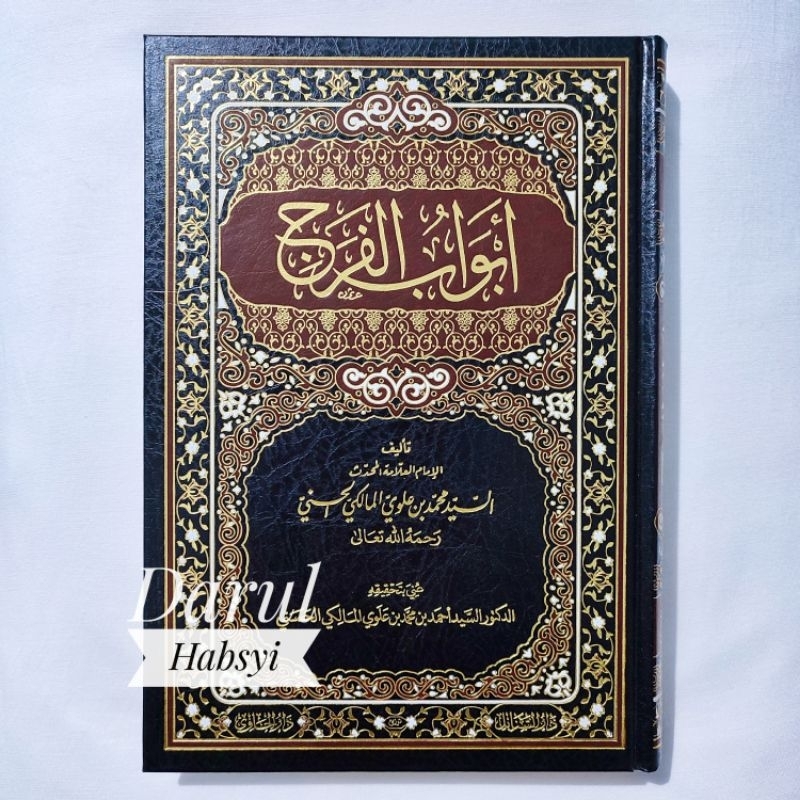 أبواب الفرج
تأليف
الإمام العلامة المحدث
السيد محمد بن علوي المالكي الحسني
رحمه الله تعالى
عني بتحقيقه
الدكتور السيد أحمد بن محمد بن علوي المالكي الحسني
Darul
Habsyi
دار السنابل
دار الحاوي